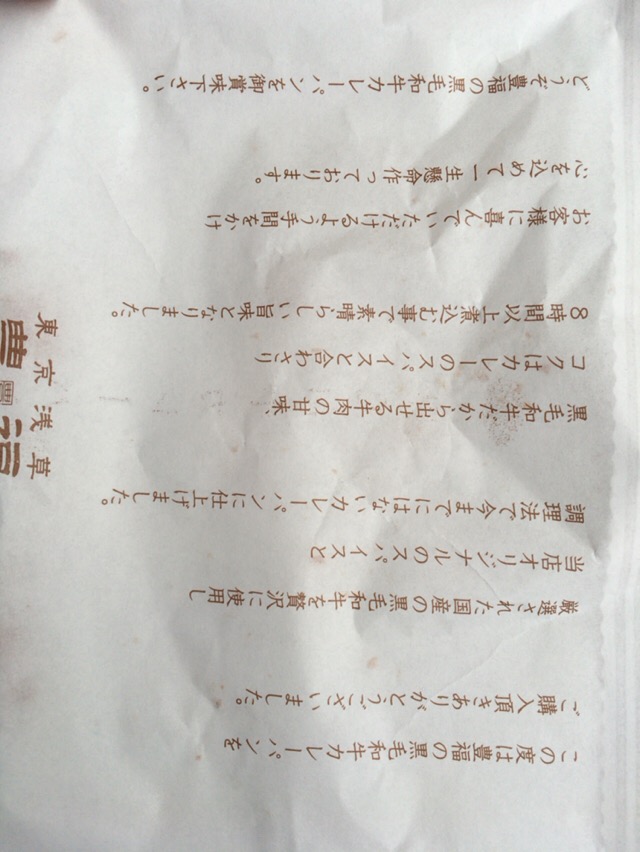 この度は豊福の黒毛和牛カレーパンを
ご購入頂きありがとうございました。
厳選された国産の黒毛和牛を贅沢に使用し
当店オリジナルのスパイスと
調理法で今までにはないカレーパンに仕上げました。
黒毛和牛だから出せる牛肉の甘味、
コクはカレーのスパイスと合わさり
8時間以上煮込む事で素晴らしい旨味となりました。
お客様に喜んでいただけるよう手間をかけ
心を込めて一生懸命作っております。
どうぞ豊福の黒毛和牛カレーパンを御賞味下さい。
東京浅草
豊福